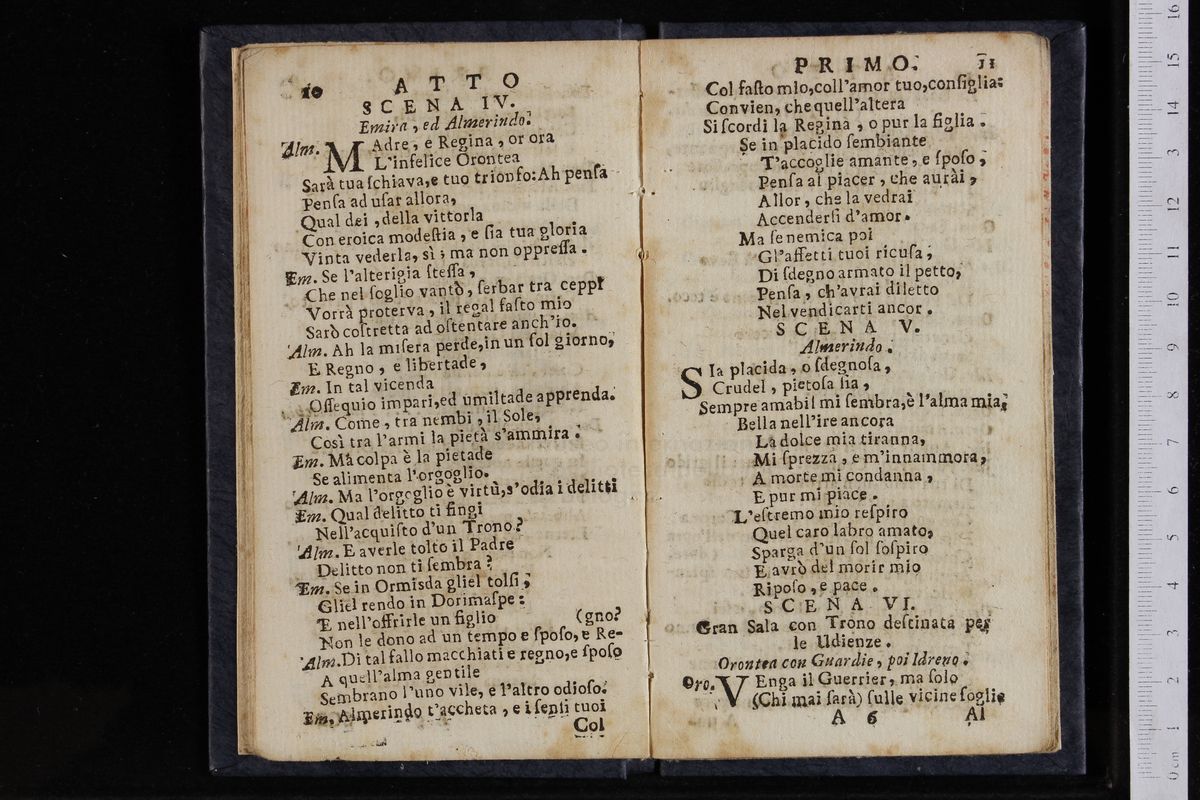 10 ATTO
SCENA IV.
Emira, ed Almerindo.
Alm. MAdre, e Regina, or ora
L'infelice Orontea
Sarà tua ſchiava,e tuo trionfo:Ah penſa
Penſa ad uſar allora,
Qual dei ,della vittoria
Con eroica modeſtia, e ſia tua gloria
Vinta vederla, sì; ma non oppreſſa.
Em. Se l'alterigia ſteſſa,
Che nel ſoglio vantò, ſerbar tra ceppi
Vorrà proterva, il regal faſto mio
Sarò coſtretta ad oſtentare anch'io.
Alm. Ah la miſera perde,in un ſol giorno,
E Regno, e libertade,
Em. In tal vicenda
Oſſequio impari,ed umiltade apprenda.
Alm. Come, tra nembi, il Sole,
Così tra l'armi la pietà s'ammira.
Em. Ma colpa è la pietade
Se alimenta l'orgoglio.
Alm. Ma l'orgeglio è virtù,s'odia i delitti
Em. Qual delitto ti fingi
Nell'acquiſto d'un Trono?
Alm. E averle tolto il Padre
Delitto non ti ſembra?
Em. Se in Ormisda gliel tolſi,
Gliel rendo in Dorimaſpe:
E nell'offrirle un figlio (gno?
Non le dono ad un tempo e ſpoſo, e Re-
Alm.Di tal fallo macchiati e regno,e ſpoſo
A quell'alma gentile
Sembrano l'uno vile, e l'altro odioſo.
Em. Almerindo t'accheta, e i ſenſi tuoi
Col
PRIMO. 11
Col faſto mio,coll'amor tuo,conſiglia:
Convien, che quell'altera
Si ſcordi la Regina, o pur la figlia.
Se in placido ſembiante
T'accoglie amante, e ſpoſo,
Penſa al piacer, che aurài,
Allor, che la vedrai
Accenderſi d'amor.
Ma ſe nemica poi
Gl'affetti tuoi ricuſa,
Di ſdegno armato il petto,
Penſa, ch'avrai diletto
Nel vendicarti ancor.
SCENA V.
Almerindo.
SIa placida, o ſdegnoſa,
Crudel, pietoſa ſia,
Sempre amabil mi ſembra,è l'alma mia;
Bella nell'ire ancora
La dolce mia tiranna,
Mi ſprezza, e m'innammora,
A morte mi condanna,
E pur mi piace.
L'eſtremo mio reſpiro
Quel caro labro amato,
Sparga d'un ſol ſoſpiro
E avrò del morir mio
Ripoſo, e pace.
SCENA VI.
Gran Sala con Trono deſtinata per
le Udienze.
Orontea con Guardie, poi Idreno.
Oro. VEnga il Guerrier, ma ſolo
(Chi mai ſarà) ſulle vicine ſoglie
A 6 Al